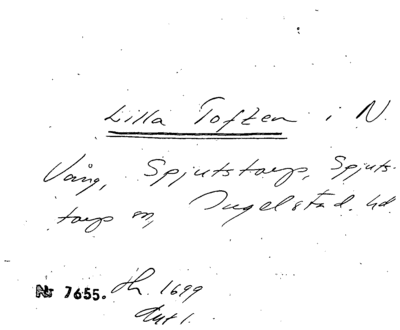 Lilla Toften i N.
Vång, Spjutstorp, Spjuts-
torp sn, Ingelstad. hd
Nr 7655. Ah. 1699
Avt 1.